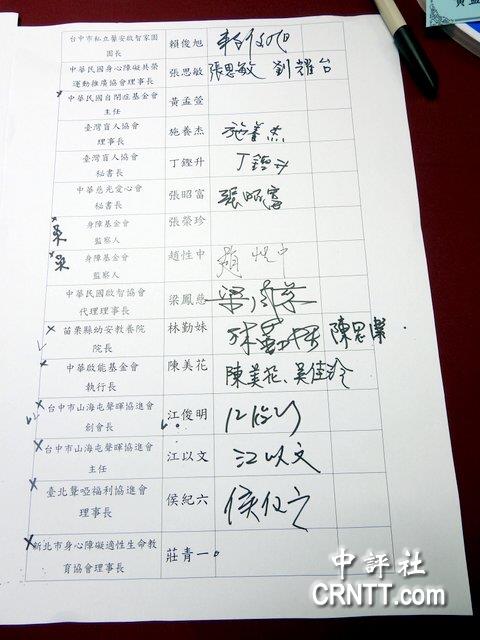 台中市私立馨安啟智家園 賴俊旭
園長
中華民國身心障礙共榮 張思敏 張思敏 劉耀台
運動推廣協會理事長
中華民國自閉症基金會 黃孟萱
主任
臺灣盲人協會 施養杰 施養杰
理事長
臺灣盲人協會 丁鏗升 丁鏗升
秘書長
中華慈光愛心會 張昭富 張昭富
秘書長
身障基金會 張榮珍
監察人
身障基金會 趙性中 趙性中
監察人
中華民國啟智協會 梁鳳慈
代理理事長
苗栗縣幼安教養院 林勤妹 林勤妹 陳思
院長
中華啟能基金會 陳美花 陳美花、吳佳玲
執行長
台中市山海屯聲暉協進會 江俊明
創會長
台中市山海屯聲暉協進會 江以文 江以文
主任
臺北聲啞福利協進會 侯紀六 侯紀六
理事長
新北市身心障礙適性生命教 莊青一
育協會理事長
中評社
CRNTT.com